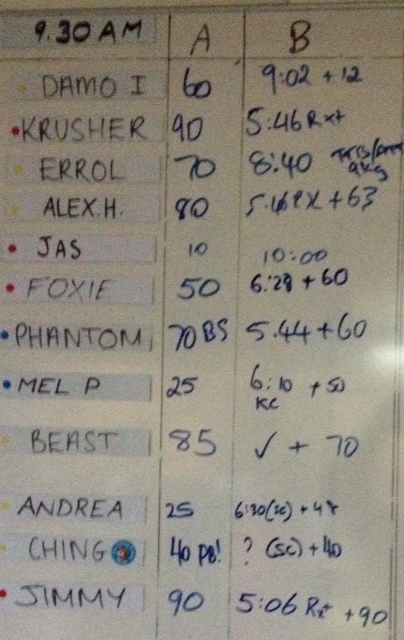 9.30 AM A B
DAMO I 60 9:02 + 12
KRUSHER 90 5:46 Rx+
ERROL 70 8:40 9kg
ALEX.H. 80 + 63
JAS 10 10:00
FOXIE 50 6:28 + 60
PHANTOM 70 BS 5.44 + 60
MEL P 25 6:10 + 50
KC
BEAST 85 ✓ + 70
ANDREA 25 6:30 (sc) + 48
CHING 40 PB! ? (SC) + 40
JIMMY 90 5:06 Rx + 90